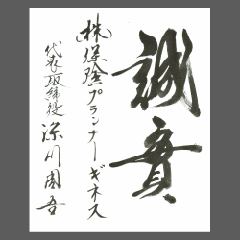 誠實
(株)保険プランナーギネス
代表取締役 深川園吾